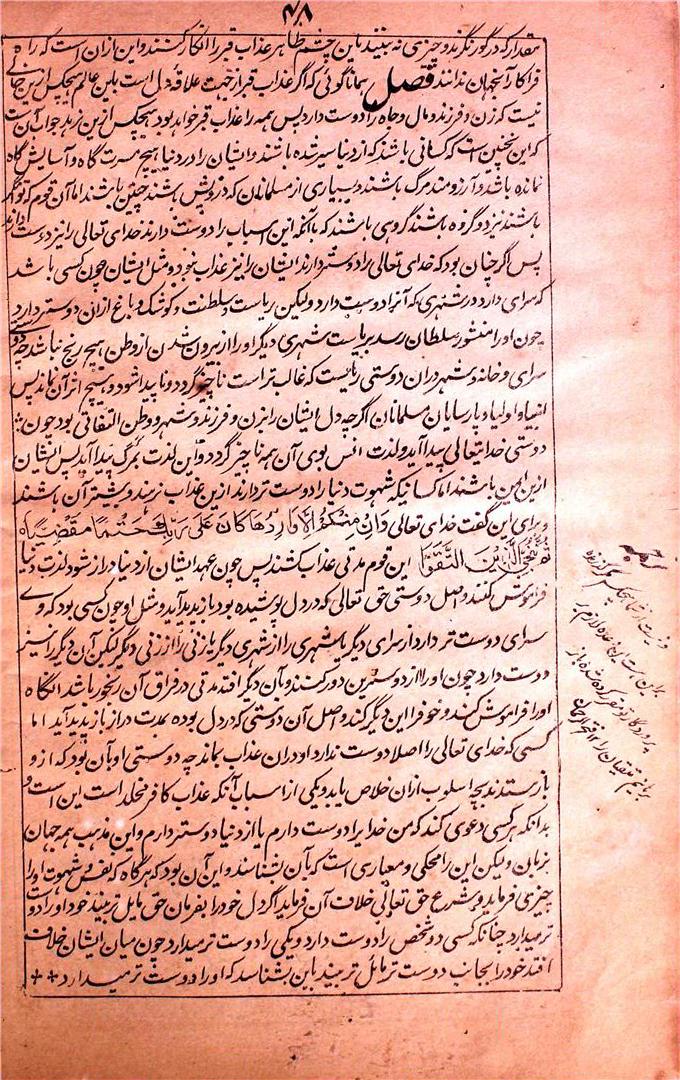 ۴۸
مقدار که در گور نگرند و چیزی نه بینند باین چشم ظاهر عذاب قبر را انکار کنند و این ازان است که راه
فرا کار آنجهان ندانند فصل همانا گوئی که اگر عذاب قبر از جهت علاقه دل است باین عالم هیچکس ازین خالی
نیست که زن و فرزند و مال و جاه را دوست دارد پس همه را عذاب قبر خواهد بود و هیچکس ازین نرهد جواب آنست
که این نچنین است که کسانی باشند که از دنیا سیر شده باشند و ایشان را در دنیا هیچ مسرت گاه و آسایش گاه
نمانده باشد و آرزومند مرگ باشند و بسیاری از مسلمانان که درویش باشند چنین باشند اما آن قوم که توانگر
باشند نیز دو گروه باشند گروهی باشند که باآنکه این اسباب را دوست دارند خدای تعالی را نیز دوست دارند
پس اگر چنان بود که خدای تعالی را دوستر دارند ایشان را نیز عذاب نبود و مثل ایشان چون کسی باشد
که سرای دارد در شهری که آنرا دوست دارد ولیکن ریاست و سلطنت و کوشک و باغ ازان دوستر دارد
چون او را منشور سلطان رسد بریاست شهری دیگر او را از بیرون شدن از وطن هیچ رنج نباشد چه دوستی
سرای و خانه و شهر دران دوستی ریاست که غالب تر است ناچیز گردد و ناپیدا شود و هیچ اثر آن نماند پس
انبیاء و اولیاء و پارسایان مسلمانان اگرچه دل ایشان را بزن و فرزند و شهر و وطن التفاتی بود چون
دوستی خدایتعالی پیدا آید و لذت انس بوی آن همه ناچیز گردد و این لذت بمرگ پیدا آید پس ایشان
ازین ایمن باشند اما کسانیکه شهوت دنیا را دوست تر دارند ازین عذاب نرهند و بیشتر آن باشند
و برای این گفت خدای تعالی وَاِنْ مِنْکُمْ اِلَّا وَارِدُهَا کَانَ عَلٰی رَبِّکَ حَتْمًا مَقْضِیًّا
ثُمَّ نُنَجِّی الَّذِیْنَ اتَّقَوْا این قوم مدتی عذاب کشند پس چون عهد ایشان از دنیا دراز شود لذت دنیا
فراموش کنند و اصل دوستی حق تعالی که در دل پوشیده بود باز پدید آید و مثل او چون کسی بود که وی
سرای دوست تر دارد از سرای دیگر یا شهری را از شهری دیگر یا زنی را از زنی دیگر لیکن آن دیگر را نیز
دوست دارد چون او را از دوسترین دور کنند و بآن دیگر افتد مدتی در فراق آن رنجور باشد آنگاه
او را فراموش کند و خو فرا این دیگر کند و اصل آن دوستی که در دل بوده بمدت دراز باز پدید آید اما
کسی که خدای تعالی را اصلا دوست ندارد او دران عذاب بماند چه دوستی او بآن بود که ازو
باز ستدند بچه اسلوب ازان خلاص یابد و یکی از اسباب آنکه عذاب کافر مخلد است این است و
بدانکه هر کسی دعوی کند که من خدایرا دوست دارم یا از دنیا دوستر دارم و این مذهب همه جهان
بزبان ولیکن این را محکی و معیاری است که بآن بشناسند و این آن بود که هرگاه که نفس و شهوت او را
چیزی فرماید و شرع حق تعالی خلاف آن فرماید اگر دل خود را بفرمان حق مایل تر بیند خود او را دوست
تر میدارد چنانکه کسی دو شخص را دوست دارد و یکی را دوست تر میدارد چون میان ایشان خلاف
افتد خود را بجانب دوست تر مائل تر بیند باین بشناسد که او را دوست تر میدارد
ترجمه
و نیست از شما هیچکس مگر گذرنده
بران است این وعده لازم بر
پروردگار تو مقرر کرده شده باز
برهانیم متقیان را